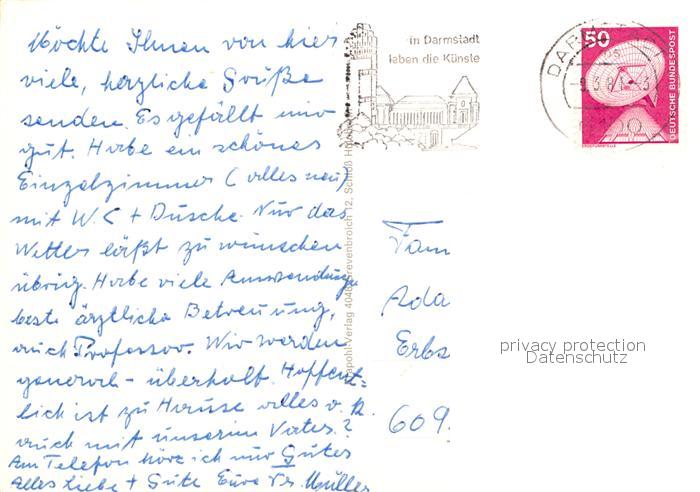 Möchte Ihnen von hier
viele, herzliche Grüße
senden. Es gefällt mir
gut. Habe ein schönes
Einzelzimmer (alles neu)
mit W.C + Dusche. Nur das
Wetter läßt zu wünschen
übrig. Habe viele Anwendunge
beste ärztliche Betreuung,
auch Professor. Wir werden
general- überholt. Hoffent=
lich ist zu Hause alles o.k.
auch mit unserem Vater?
Am Telefon höre ich nur Gutes
Alles Liebe + Gute Eure Müller
in Darmstadt
leben die Künste
50
DEUTSCHE BUNDESPOST
Verlag 404 Grevenbroich 12, Schloß
Fam
Ada
Erbs
609.
privacy protection
Datenschutz